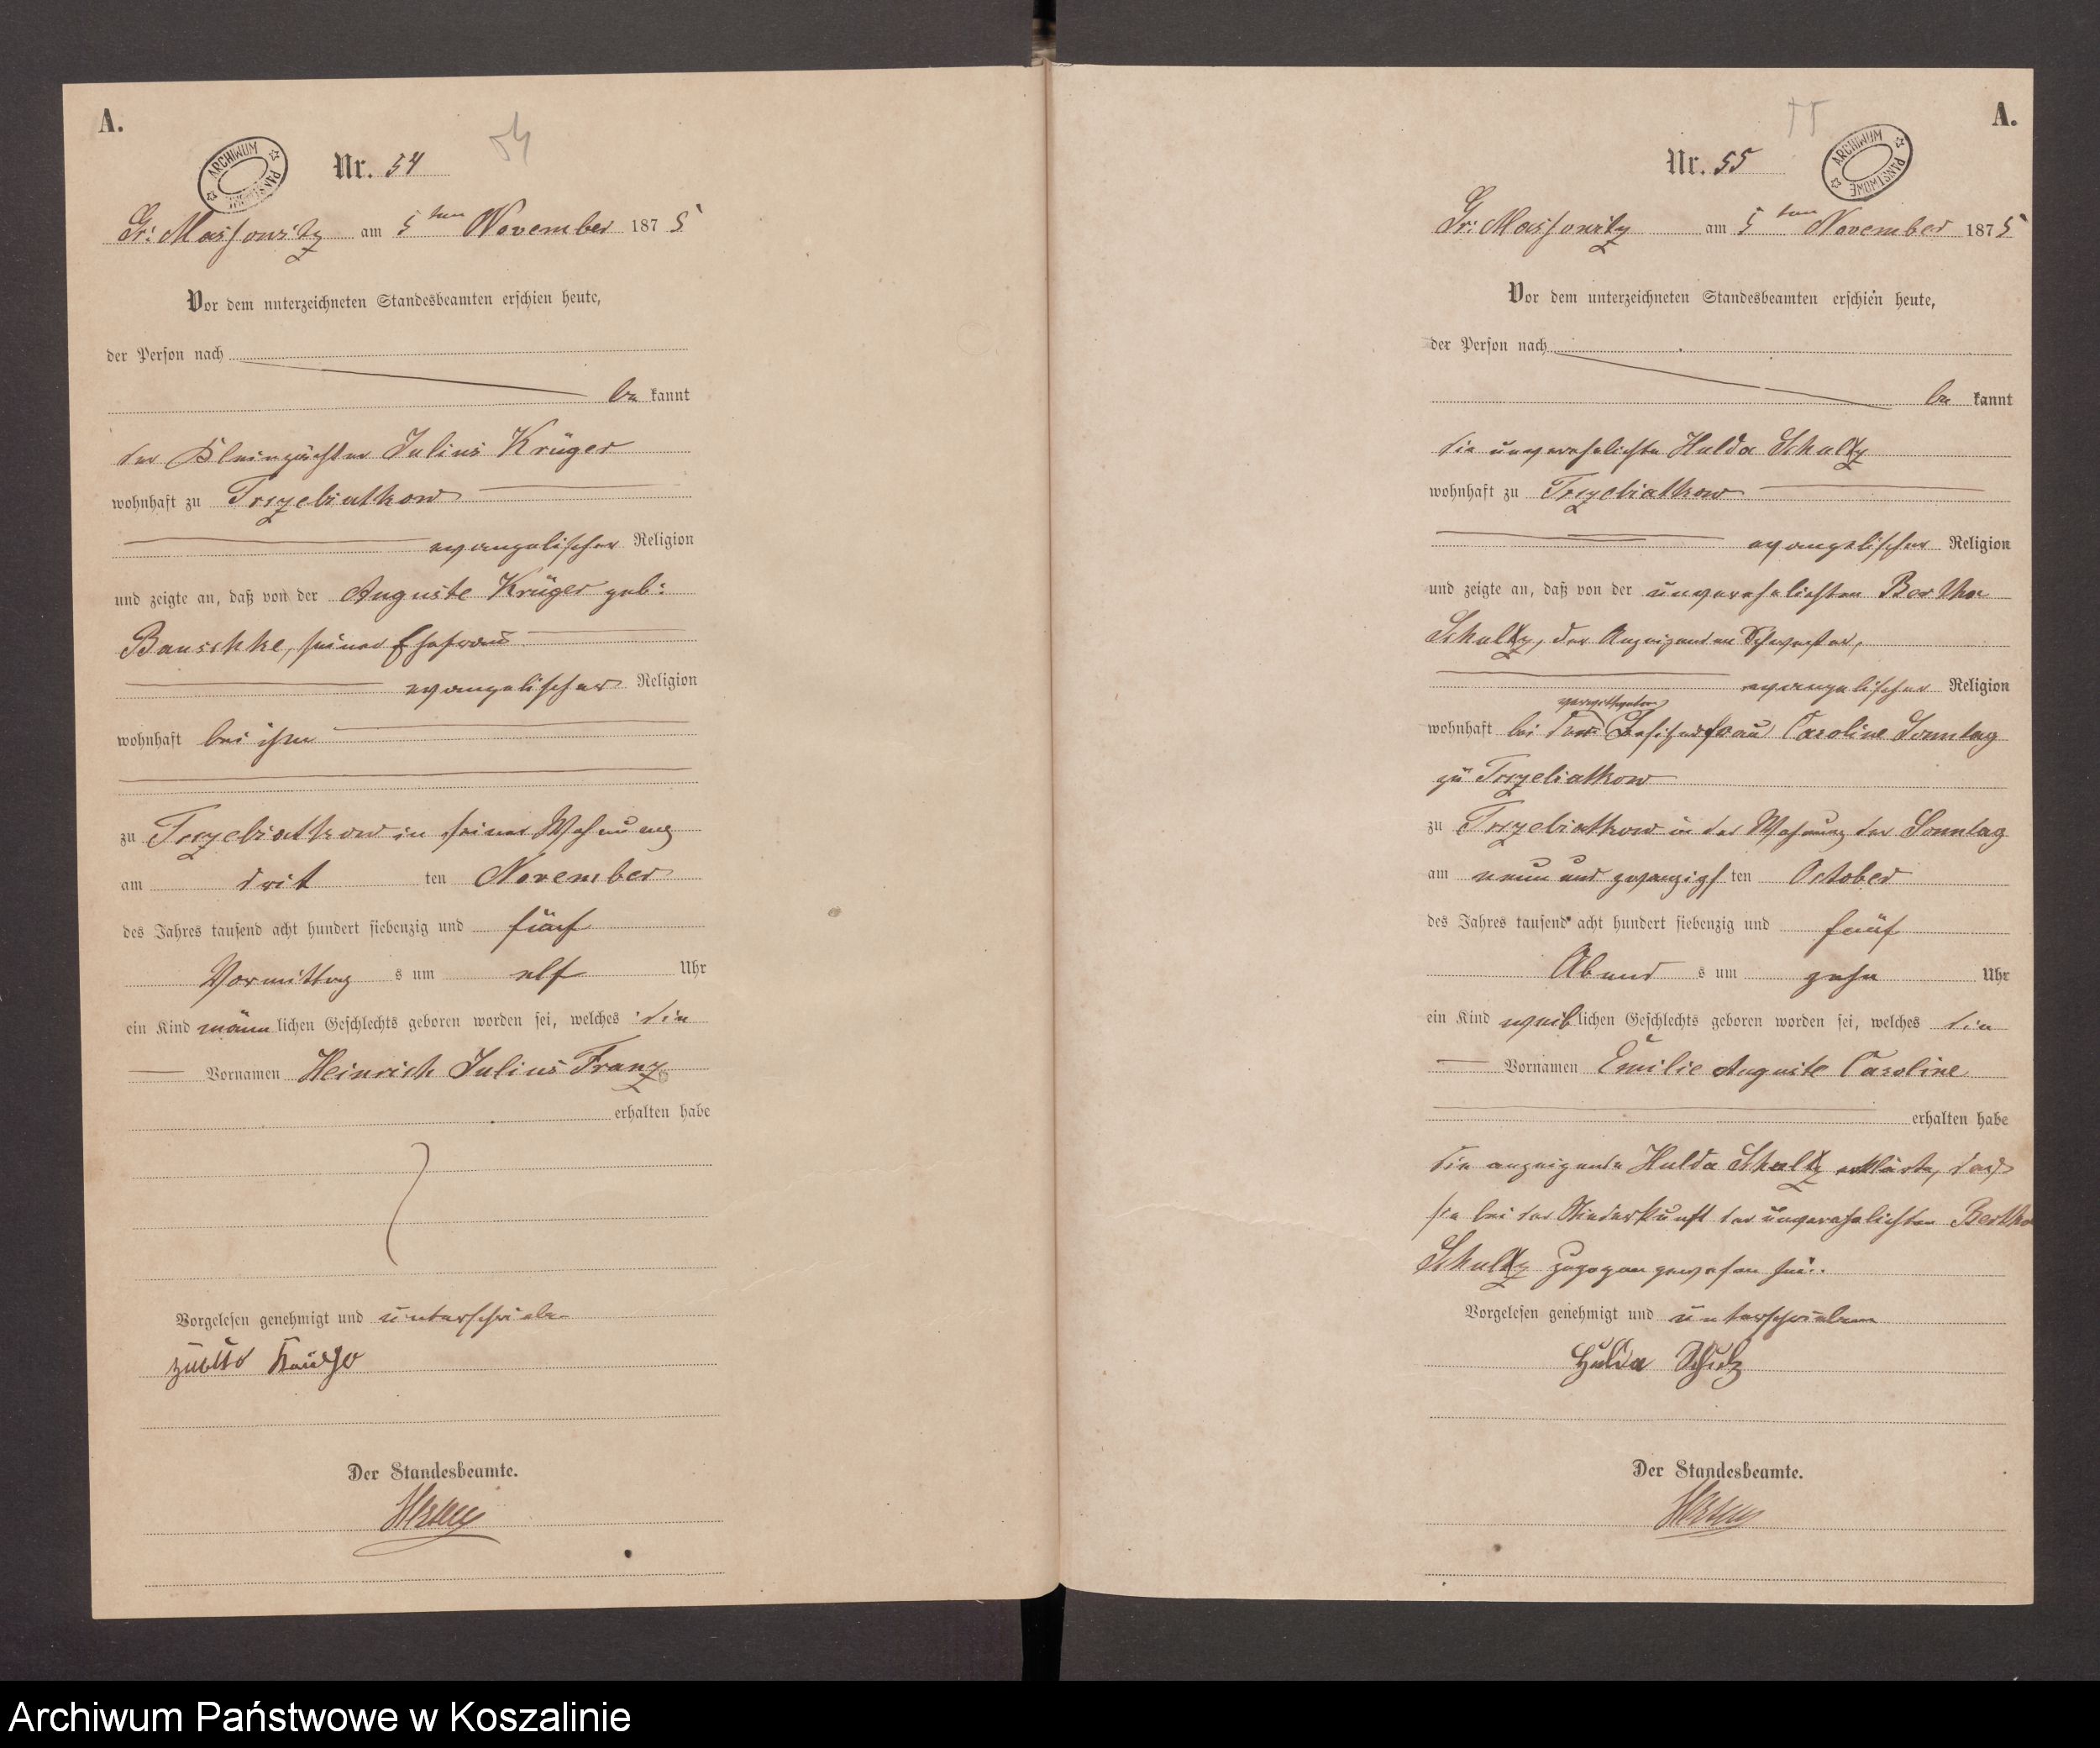 A.
ARCHIWUM PAŃSTWOWE
Nr. 54
54
Gr: Massowitz am 5ten November 1875
Vor dem unterzeichneten Standesbeamten erschien heute,
der Person nach
be kannt
der Kleinpächter Julius Krüger
wohnhaft zu Trzebiatkow
evangelischer Religion
und zeigte an, daß von der Auguste Krüger geb:
Bauschke, seiner Ehefrau
evangelischer Religion
wohnhaft bei ihm
zu Trzebiatkow in seiner Wohnung
am drit ten November
des Jahres tausend acht hundert siebenzig und fünf
Vormittag s um elf Uhr
ein Kind männ lichen Geschlechts geboren worden sei, welches die
Vornamen Heinrich Julius Franz
erhalten habe
Vorgelesen genehmigt und unterschrieben
Julius Krüger
Der Standesbeamte.
A.
55
ARCHIWUM PAŃSTWOWE
Nr. 55
Gr: Massowitz am 5ten November 1875
Vor dem unterzeichneten Standesbeamten erschien heute,
der Person nach
be kannt
die unverehelichte Hulda Schultz
wohnhaft zu Trzebiatkow
evangelischer Religion
und zeigte an, daß von der unverehelichten Bertha
Schultz, der Anzeigenden Schwester,
evangelischer Religion
wohnhaft bei der Besitzerfrau Caroline Sonntag
zu Trzebiatkow
zu Trzebiatkow in der Wohnung der Sonntag
am neun und zwanzigs ten October
des Jahres tausend acht hundert siebenzig und fünf
Abend s um zehn Uhr
ein Kind weib lichen Geschlechts geboren worden sei, welches die
Vornamen Emilie Auguste Caroline
erhalten habe
die anzeigende Hulda Schultz erklärte, daß
sie bei der Niederkunft der unverehelichten Bertha
Schultz zugegen gewesen sei.
Vorgelesen genehmigt und unterschrieben
Hulda Schulz
Der Standesbeamte.
Archiwum Państwowe w Koszalinie